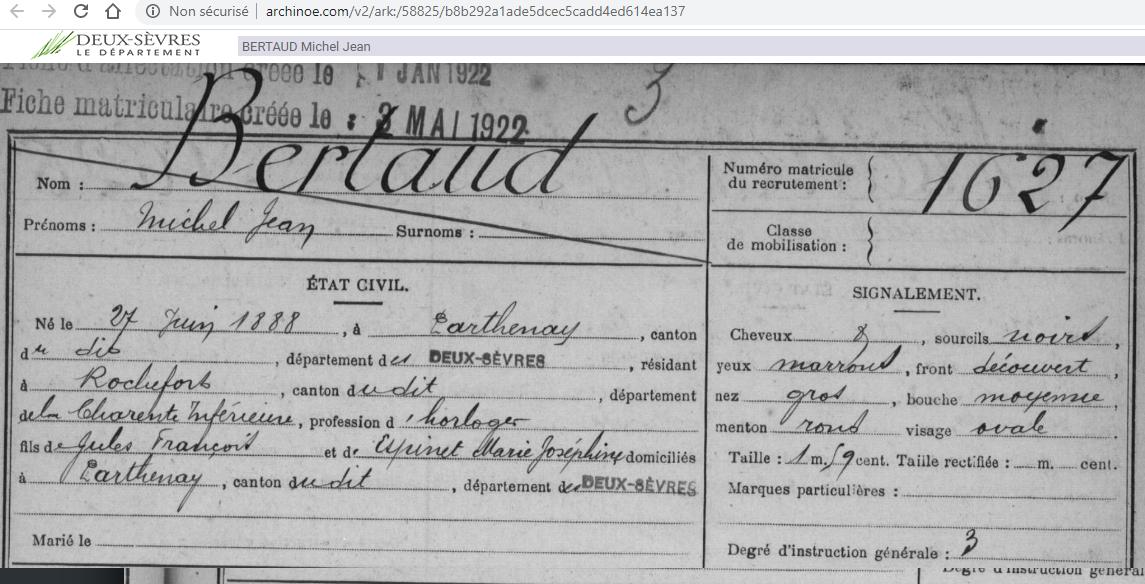 Non sécurisé | archinoe.com/v2/ark:/58825/b8b292a1ade5dcec5cadd4ed614ea137
DEUX-SÈVRES
LE DÉPARTEMENT
BERTAUD Michel Jean
créée le 1 JAN 1922
Fiche matriculaire créée le : 3 MAI 1922
3
Nom : Bertaud
Numéro matricule du recrutement : 1627
Prénoms : Michel Jean Surnoms :
Classe de mobilisation :
ÉTAT CIVIL.
Né le 27 Juin 1888, à Parthenay, canton
du dit, département des DEUX-SÈVRES, résidant
à Rochefort, canton dudit, département
de la Charente Inférieure, profession d'horloger
fils de Jules François et de Espinet Marie Joséphine domiciliés
à Parthenay, canton dudit, département des DEUX-SÈVRES
Marié le
SIGNALEMENT.
Cheveux &, sourcils noirs,
yeux marrons, front découvert,
nez gros, bouche moyenne,
menton rond visage ovale.
Taille : 1 m. cent. Taille rectifiée : m. cent.
Marques particulières :
Degré d'instruction générale : 3
Degré d'instruction général